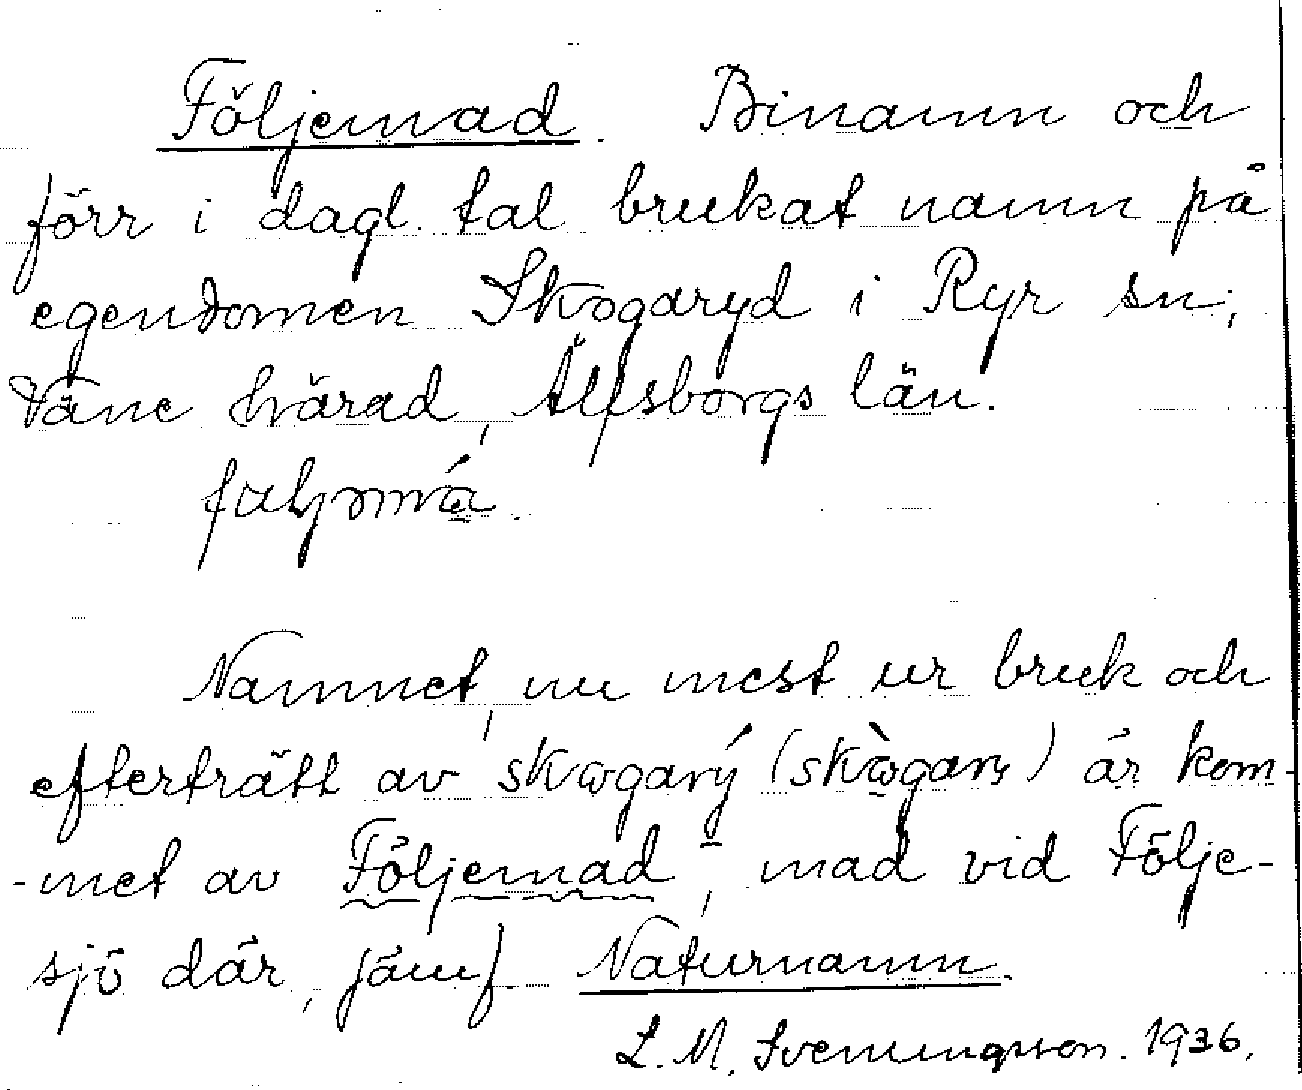 Följemad. Binamn och
förr i dagl. tal brukat namn på
egendomen Skogaryd i Ryr sn,
Väne härad, Älfsborgs län.
Namnet, nu mest ur bruk och
efterträtt av skωgarý (skὼgary) är kom-
-met av Följemad, mad vid Följe-
sjö där, jämf. Naturnamn.
L. M. Svenungsson. 1936.